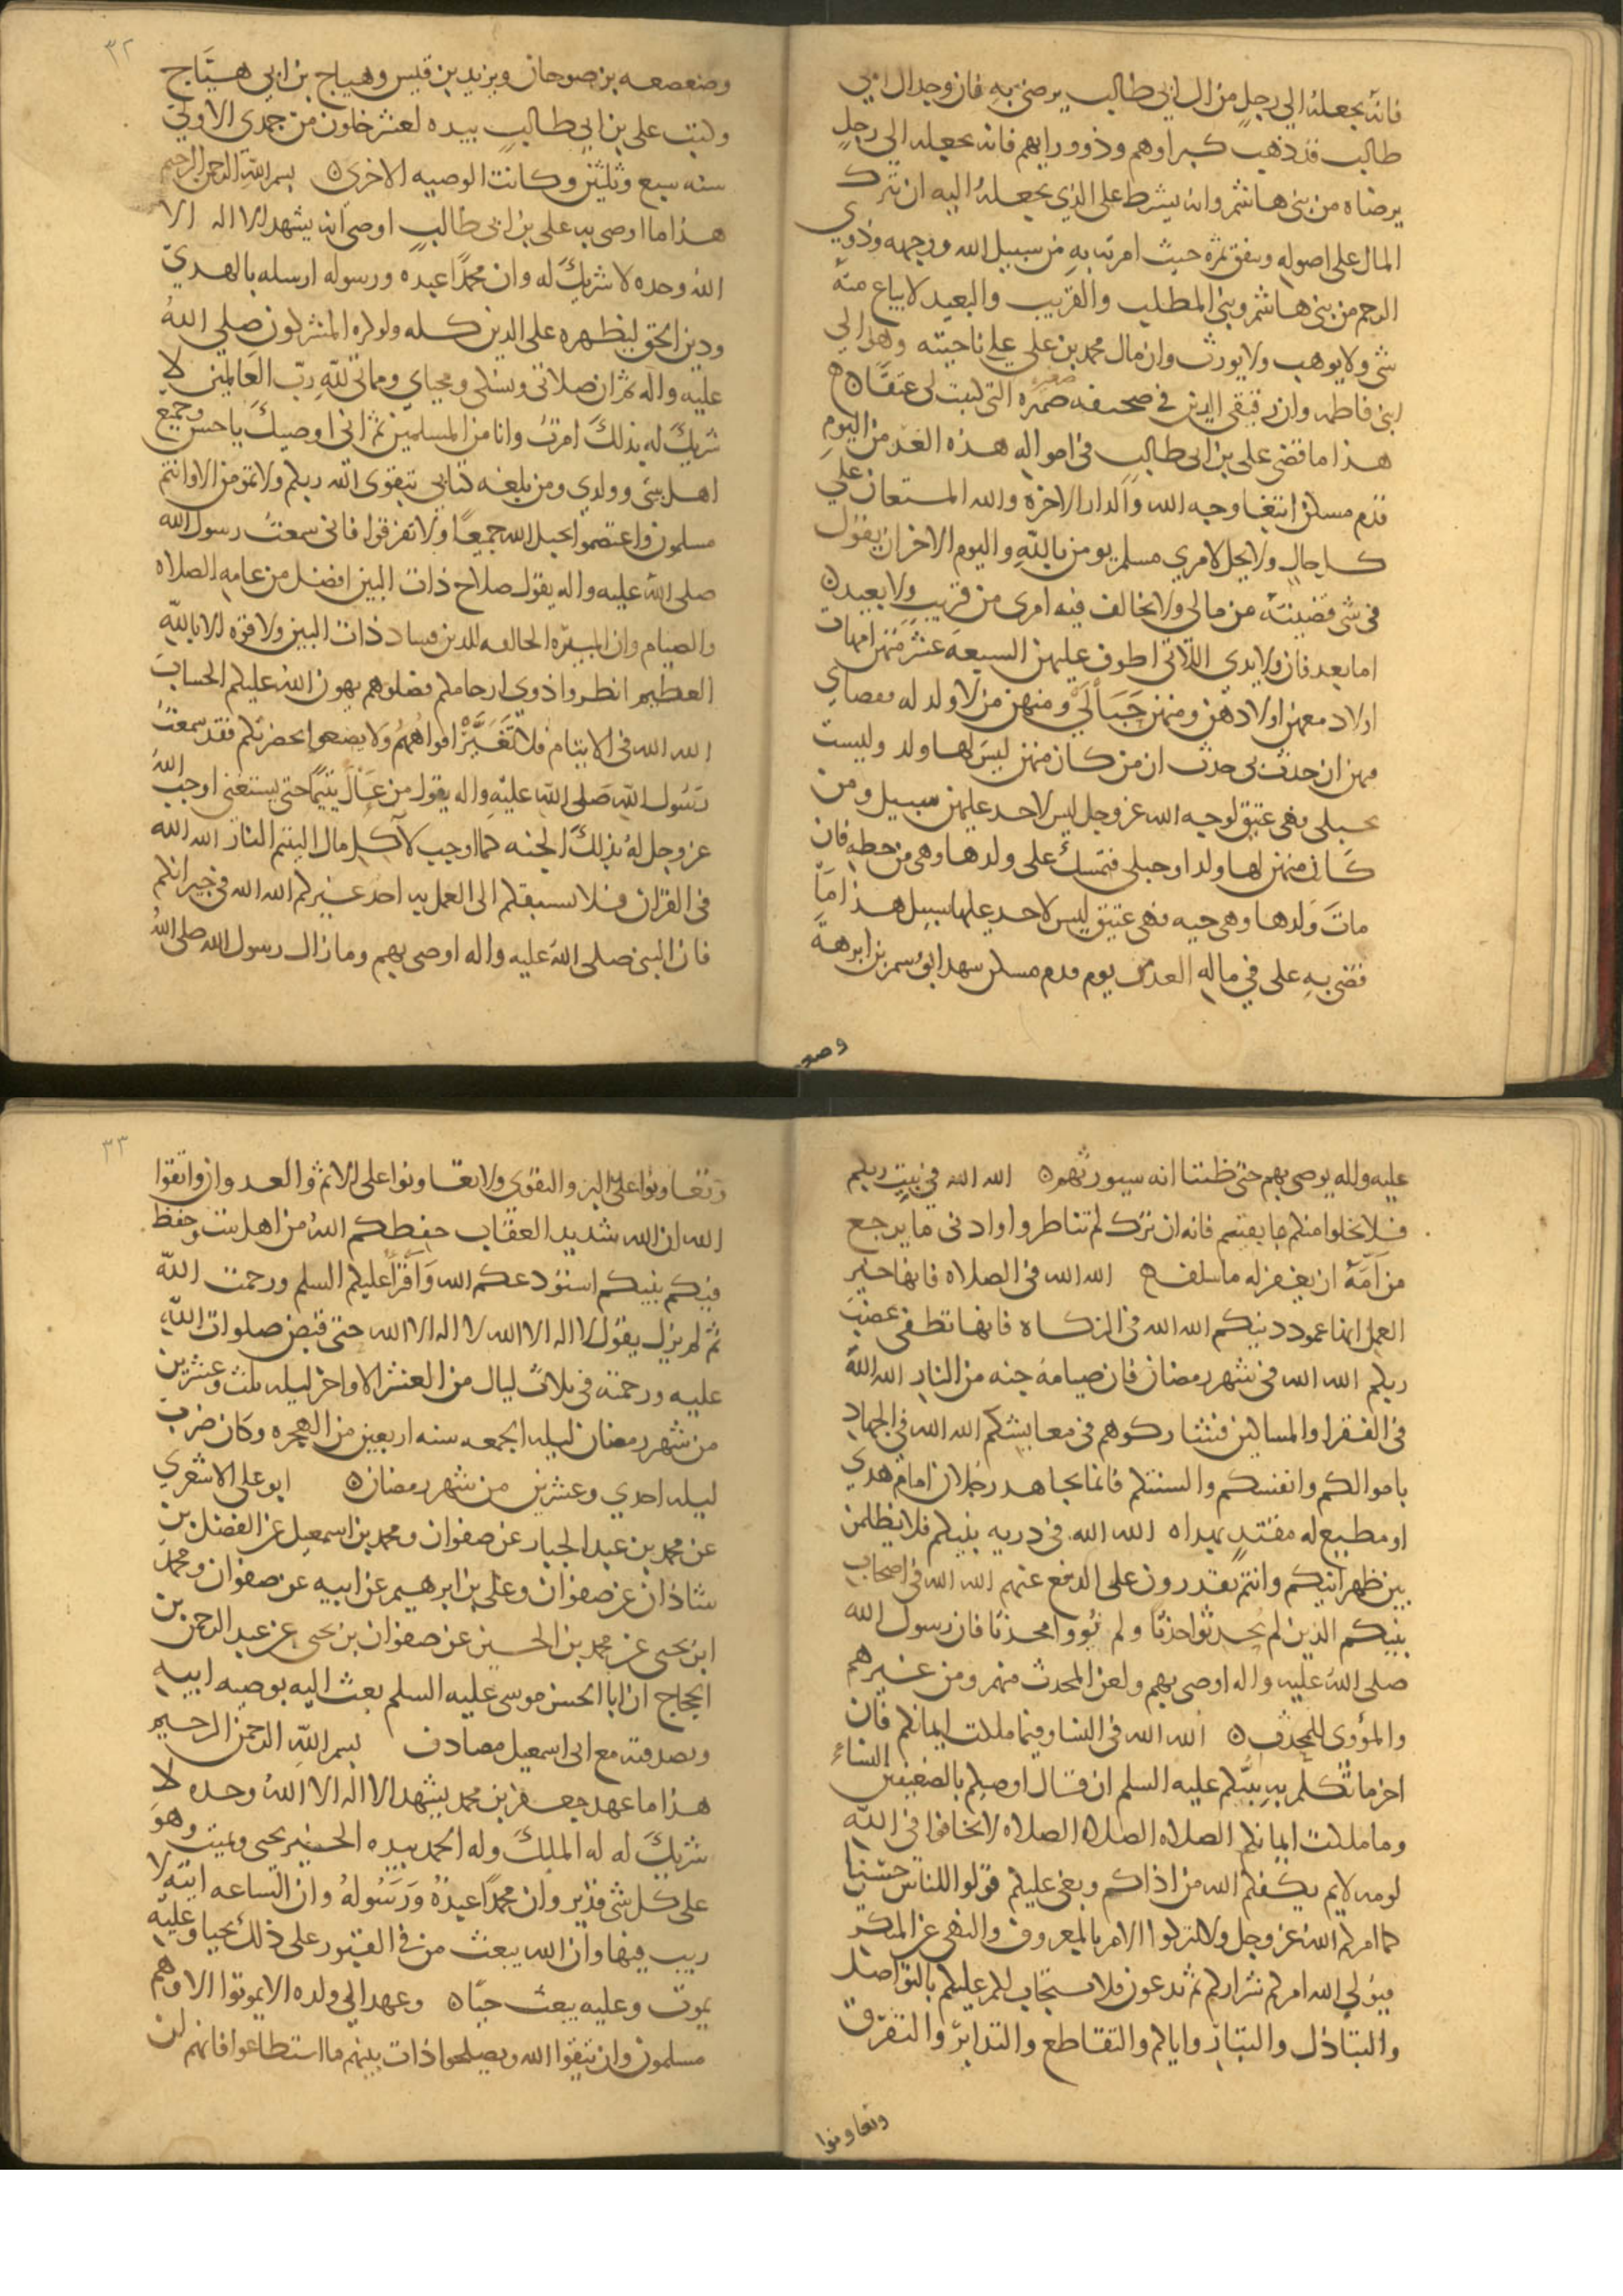 فانه يجعله الى رجل من ال ابي طالب يرضى به فان وجد ال ابي
طالب قد ذهب كبراوهم وذوو رايهم فانه يجعله الى رجل
يرضاه من بني هاشم وانه يشترط على الذي يجعله اليه ان يترك
المال على اصوله وينفق ثمره حيث امرته به من سبيل الله ووجهه وذوي
الرحم من بني هاشم وبني المطلب والقريب والبعيد لا يباع منه
شي ولا يوهب ولا يورث وان مال محمد بن علي على ناحيته وهو الى
ابني فاطمه وان رقيقي الذين في صحيفه التي كتبت لي عتقا
هذا ما قضى علي بن ابي طالب في امواله هذه الغد من اليوم
قدم مسكن ابتغا وجه الله والدار الاخره والله المستعان على
كل حال ولا يحل لامري مسلم يومن بالله واليوم الاخر ان يقول
في شي قضيته من مالي ولا يخالف فيه امري من قريب ولا بعيد ن
اما بعد فان ولايدي اللاتي اطوف عليهن السبعه عشر منهن امهات
اولاد معهن اولادهن ومنهن حبالى ومنهن من لا ولد له فقضاي
فيهن ان حدث بي حدث ان من كان منهن ليس لها ولد وليست
بحبلى فهي عتيق لوجه الله عز وجل ليس لاحد عليهن سبيل ومن
كان منهن لها ولد او حبلى فتمسك على ولدها وهي من حظه فان
مات ولدها وهي حيه فهي عتيق ليس لاحد عليها سبيل هذا ما
قضى به علي في ماله الغد من يوم قدم مسكن شهد ابو سمر بن ابرهة
وصعـ
٣٢
وصعصعه بن صوحان ويزيد بن قيس وهياج بن ابي هياج
وكتب علي بن ابي طالب بيده لعشر خلون من جمدى الاولى
سنه سبع وثلثين وكانت الوصيه الاخرى ن بسم الله الرحمن الرحيم
هذا ما اوصى به علي بن ابي طالب اوصى انه يشهد الا اله الا
الله وحده لا شريك له وان محمدا عبده ورسوله ارسله بالهدى
ودين الحق ليظهره على الدين كله ولو كره المشركون صلى الله
عليه واله ثم ان صلاتي ونسكي ومحياي ومماتي لله رب العالمين لا
شريك له بذلك امرت وانا من المسلمين ثم اني اوصيك يا حسن وجميع
اهل بيتي وولدي ومن بلغه كتابي بتقوى الله ربكم ولا تموتن الا وانتم
مسلمون واعتصموا بحبل الله جميعا ولا تفرقوا فاني سمعت رسول الله
صلى الله عليه واله يقول صلاح ذات البين افضل من عامه الصلاه
والصيام وان المبيره الحالقه للدين فساد ذات البين ولا قوه الا بالله
العظيم انظروا ذوي ارحامكم فصلوهم يهون الله عليكم الحساب
الله الله في الايتام فلا افواههم ولا يضيعوا بحضرتكم فقد سمعت
رسول الله صلى الله عليه واله يقول من عال يتيما حتى يستغني اوجب الله
عز وجل له بذلك الجنه كما اوجب لآكل مال اليتيم النار الله الله
في القران فلا يسبقكم الى العمل به احد غيركم الله الله في جيرانكم
فان النبي صلى الله عليه واله اوصى بهم وما زال رسول الله صلى الله
عليه واله يوصي بهم حتى ظننا انه سيورثهم ن الله الله في بيت ربكم
فلا يخلوا منكم ما بقيتم فانه ان ترك لم تناظروا وادنى ما يرجع
من امه ان يغفر له ما سلف ه الله الله في الصلاه فانها خير
العمل انها عمود دينكم الله الله في الزكاه فانها تطفي غضب
ربكم الله الله في شهر رمضان فان صيامه جنه من النار الله الله
في الفقرا والمساكين فشاركوهم في معايشكم الله الله في الجهاد
باموالكم وانفسكم والسنتكم فانما يجاهد رجلان امام هدى
او مطيع له مقتد بهداه الله الله في دريه نبيكم فلا يظلمن
بين ظهرانيكم وانتم تقدرون على الدفع عنهم الله الله في اصحاب
نبيكم الذين لم يحدثوا حدثا ولم يؤووا محدثا فان رسول الله
صلى الله عليه واله اوصى بهم ولعن المحدث منهم ومن غيرهم
والمؤوى للمحدث ن الله الله في النسا وفيما ملكت ايمانكم فان
اخر ما تكلم به نبيكم عليه السلم ان قال اوصيكم بالضعيفين النساء
وما ملكت ايمانكم الصلاه الصلاه الصلاه لا تخافوا في الله
لومه لايم يكفكم الله من اذاكم وبغى عليكم قولوا للناس حسنا
كما امركم الله عز وجل ولا تتركوا الامر بالمعروف والنهى عن المنكر
فيولي الله امركم شراركم ثم تدعون فلا يستجاب لكم عليكم بالتواصل
والتباذل والتبار واياكم والتقاطع والتدابر والتفرق
وتعاونوا
٣٣
وتعاونوا على البر والتقوى ولا تعاونوا على الاثم والعدوان واتقوا
الله ان الله شديد العقاب حفظكم الله من اهل بيت وحفظ
فيكم نبيكم استودعكم الله واقرا عليكم السلم ورحمت الله
ثم لم يزل يقول لا اله الا الله لا اله الا الله حتى قبض صلوات الله
عليه ورحمته في ثلاث ليال من العشر الاواخر ليله ثلث وعشرين
من شهر رمضان ليله الجمعه سنه اربعين من الهجره وكان ضرب
ليله احدي وعشرين من شهر رمضان ن ابو علي الاشعري
عن محمد بن عبد الجبار عن صفوان ومحمد بن اسمعيل عن الفضل بن
شاذان عن صفوان وعلي بن ابرهيم عن ابيه عن صفوان ومحمد
ابن يحيى عن محمد بن الحسين عن صفوان بن يحيى عن عبد الرحمن بن
الحجاج ان ابا الحسن موسى عليه السلم بعث اليه بوصيه ابيه
وبصدقته مع ابي اسمعيل مصادف بسم الله الرحمن الرحيم
هذا ما عهد جعفر بن محمد يشهد الا اله الا الله وحده لا
شريك له له الملك وله الحمد بيده الخير يحيى ويميت وهو
على كل شي قدير وان محمدا عبده ورسوله وان الساعه اتيه لا
ريب فيها وان الله يبعث من في القبور على ذلك يحيا وعليه
يموت وعليه يبعث حيا ه وعهد الى ولده الا يموتوا الا وهم
مسلمون وان يتقوا الله ويصلحوا ذات بينهم ما استطاعوا فانهم لن